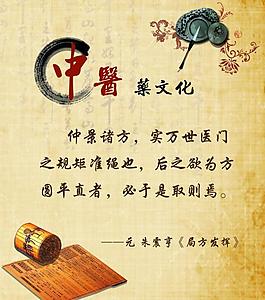 中醫藥文化
仲景诸方，实万世医门
之规矩准绳也，后之欲为方
圆平直者，必于是取则焉。
——元 朱震亨《局方发挥》